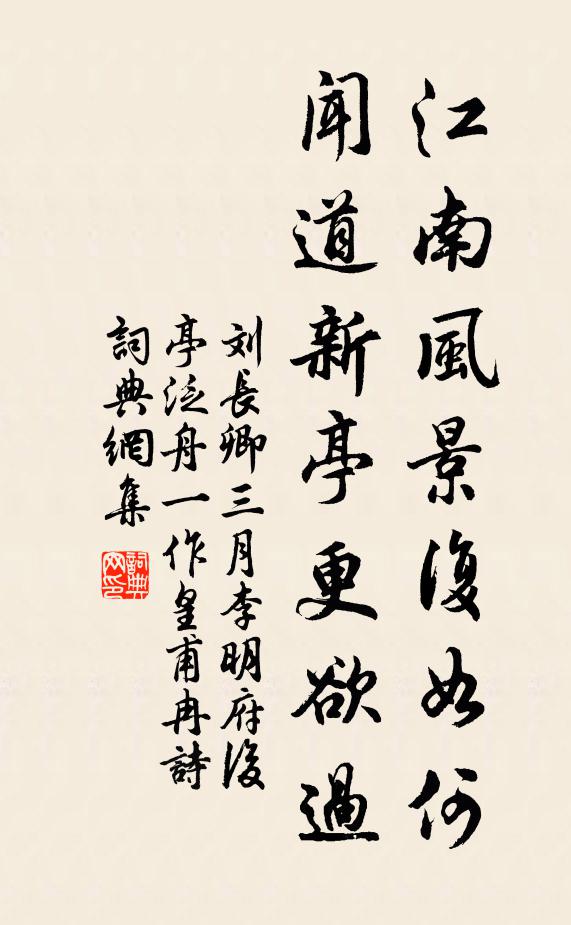 江南風景復如何
聞道新亭更欲過
刘長卿三月李明府後
亭泛舟一作皇甫冉詩
詞典網集
詞典网印